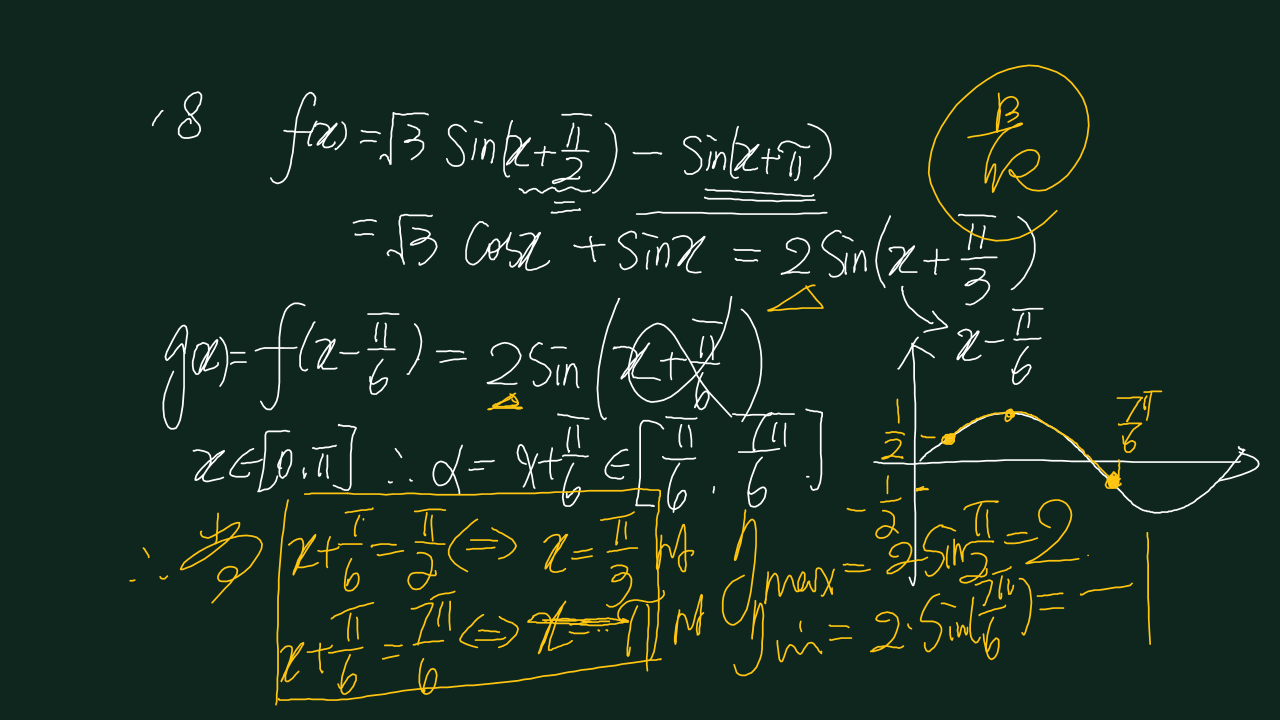 18 f(x) = √3 Sin(x+π/2) − Sin(x+π)
= √3 Cosx + Sinx = 2Sin(x+π/3)
x−π/6
g(x) = f(x−π/6) = 2Sin(x+π/6)
x∈[0.π] ∴ α = x+π/6 ∈ [π/6 . 7π/6]
1/2
7π/6
−1/2
∴ 当 x+π/6 = π/2 <=> x = π/3 时 gmax = 2Sinπ/2 = 2
x+π/6 = 7π/6 <=> x = π 时 gmin = 2·Sin(7π/6) = −1